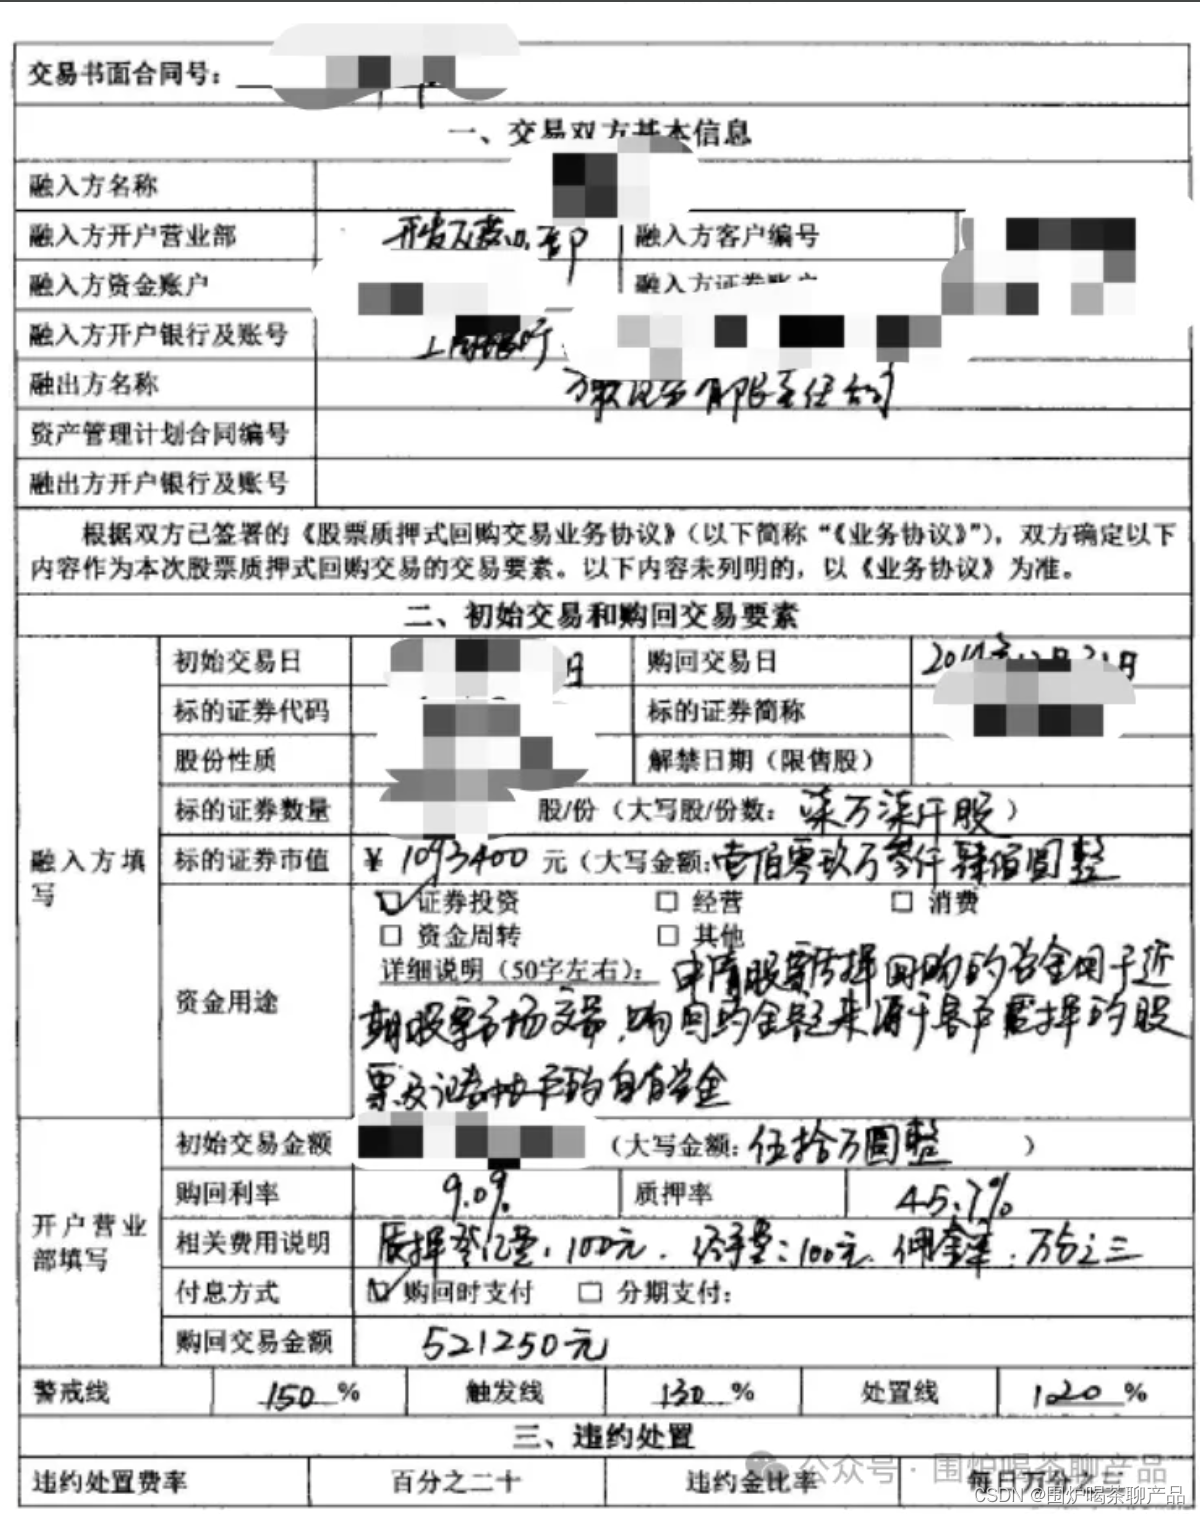 交易书面合同号：
一、交易双方基本信息
融入方名称
融入方开户营业部 融入方客户编号
融入方资金账户 融入方证券账户
融入方开户银行及账号
融出方名称 有限责任公司
资产管理计划合同编号
融出方开户银行及账号
根据双方已签署的《股票质押式回购交易业务协议》（以下简称“《业务协议》”），双方确定以下
内容作为本次股票质押式回购交易的交易要素。以下内容未列明的，以《业务协议》为准。
二、初始交易和购回交易要素
融入方填写
初始交易日 日 购回交易日
标的证券代码 标的证券简称
股份性质 解禁日期（限售股）
标的证券数量 股/份（大写股/份数：柒万柒仟股）
标的证券市值 ￥1093400 元（大写金额：壹佰零玖万叁仟肆佰圆整
资金用途
☑ 证券投资 □ 经营 □ 消费
□ 资金周转 □ 其他
详细说明（50字左右）： 申请股票质押回购的资金用于近
期股票市场交易，购回的金额来源于客户质押的股
票及证券账户的自有资金
开户营业部填写
初始交易金额 （大写金额：伍拾万圆整 ）
购回利率 9.0% 质押率 45.7%
相关费用说明 质押登记费：100元．经手费：100元．佣金率：万分之三
付息方式 ☑ 购回时支付 □ 分期支付：
购回交易金额 521250元
警戒线 150 % 触发线 130 % 处置线 120 %
三、违约处置
违约处置费率 百分之二十 违约金比率 每日万分之三
公众号 · 围炉喝茶聊产品
CSDN @围炉喝茶聊产品